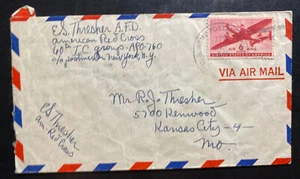 E.S. Thresher A.F.D.
American Red Cross
60th T.C. Group, APO 760
c/o postmaster New York, N.Y.
6
AIR MAIL
UNITED STATES OF AMERICA
VIA AIR MAIL
Mr. R.J. Thresher
5700 Kenwood
Kansas City - 4
Mo.
ES Thresher
Am Red Cross